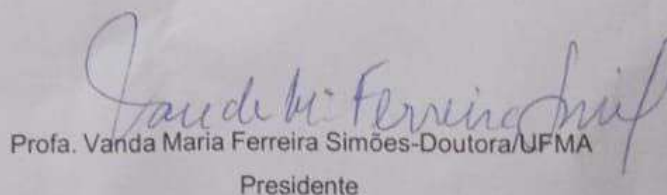 Vanda Mª Ferreira Simões
Profa. Vanda Maria Ferreira Simões-Doutora/UFMA
Presidente